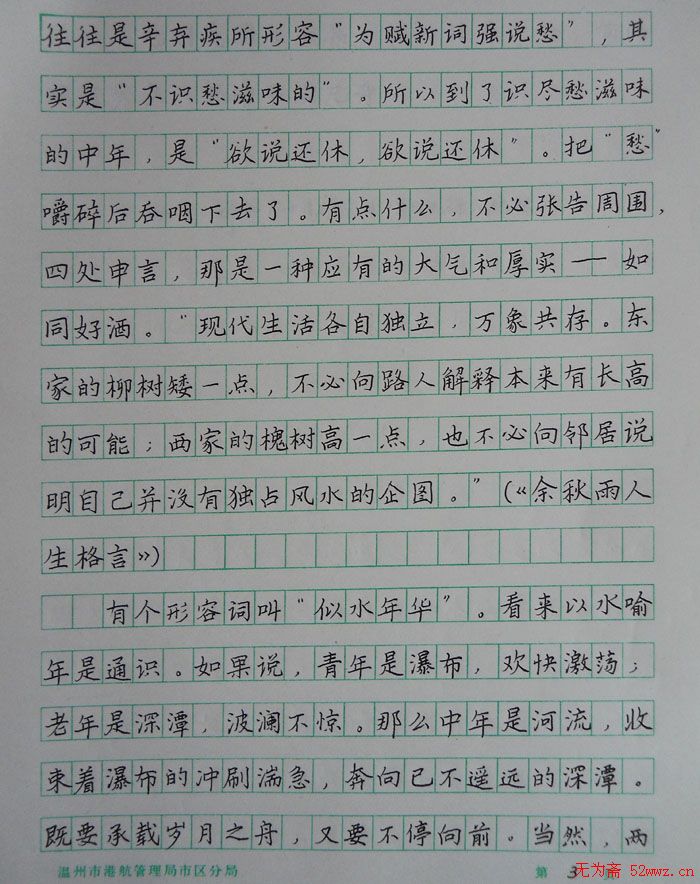 往往是辛弃疾所形容“为赋新词强说愁”，其
实是“不识愁滋味的”。所以到了识尽愁滋味
的中年，是“欲说还休，欲说还休”。把“愁”
嚼碎后吞咽下去了。有点什么，不必张告周围，
四处申言，那是一种应有的大气和厚实——如
同好酒。“现代生活各自独立，万象共存。东
家的柳树矮一点，不必向路人解释本来有长高
的可能；西家的槐树高一点，也不必向邻居说
明自己并没有独占风水的企图。”（《余秋雨人
生格言》）
有个形容词叫“似水年华”。看来以水喻
年是通识。如果说，青年是瀑布，欢快激荡；
老年是深潭，波澜不惊。那么中年是河流，收
束着瀑布的冲刷湍急，奔向已不遥远的深潭。
既要承载岁月之舟，又要不停向前。当然，两
温州市港航管理局市区分局
第 3
无为斋 52wwz.cn